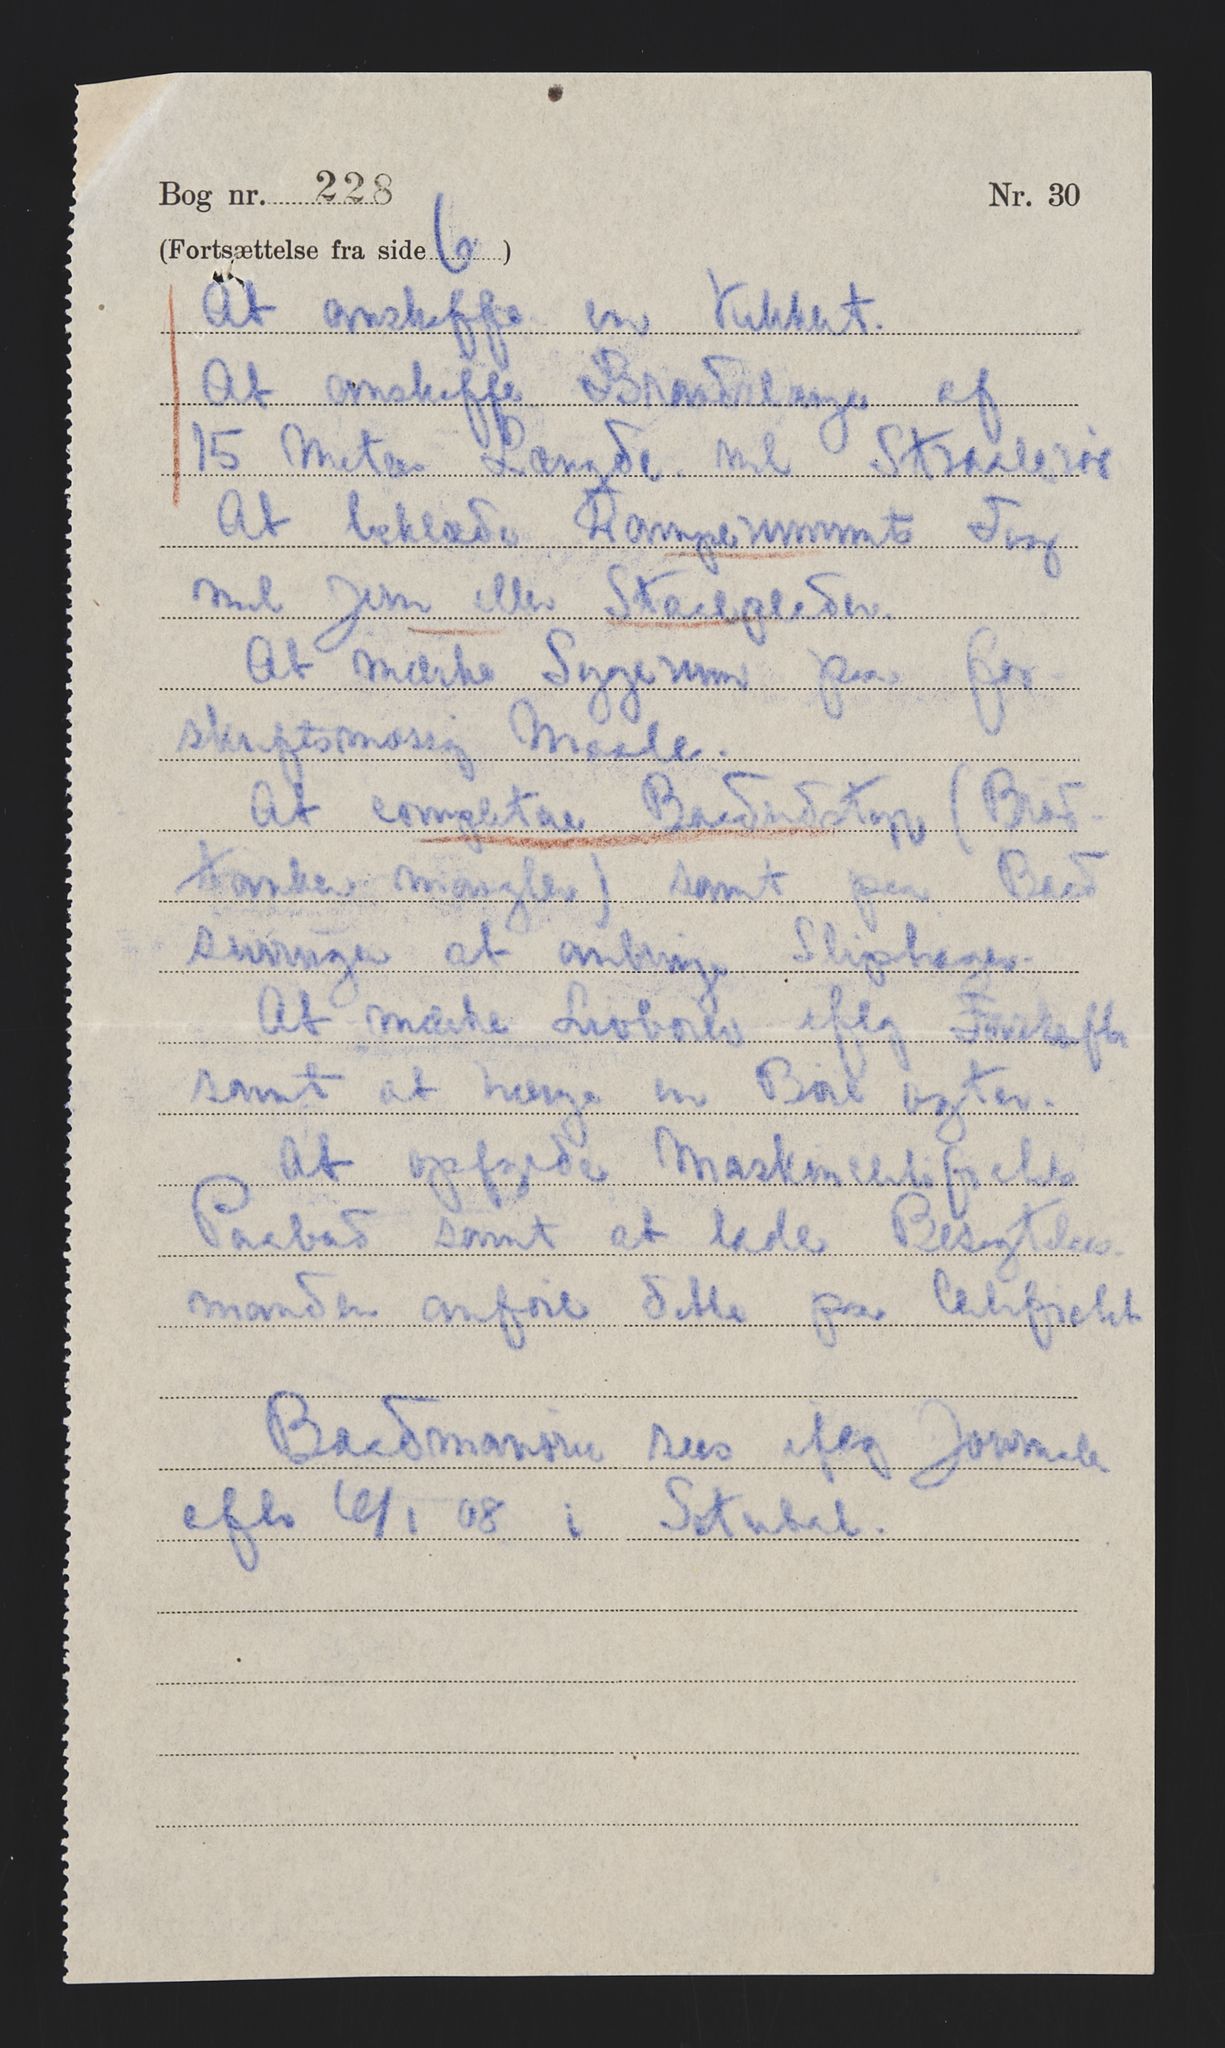 Bog nr. 228
Nr. 30
(Fortsættelse fra side 6)
At anskaffe en Kikkert.
At anskaffe Brandslange af
15 Meter Længde med Straalerør
At beklæde Lamperummets Dør
med Jern eller Staalplader.
At mærke Sygerum paa for-
skriftsmæssig Maade.
At complettere Baadudstyr (Brød-
tanker mangler) samt paa Baad
surringer at anbringe Sliphager.
At mærke ifølg Forskrifter
samt at hænge en agter.
At opfylde Maskincertifikatets
Paabud samt at lade Besigtelses-
manden anføre dette paa Certifikatet
Baadmanøvre sees ifølg Journalen
afh. 6/1 08 i Setubal.